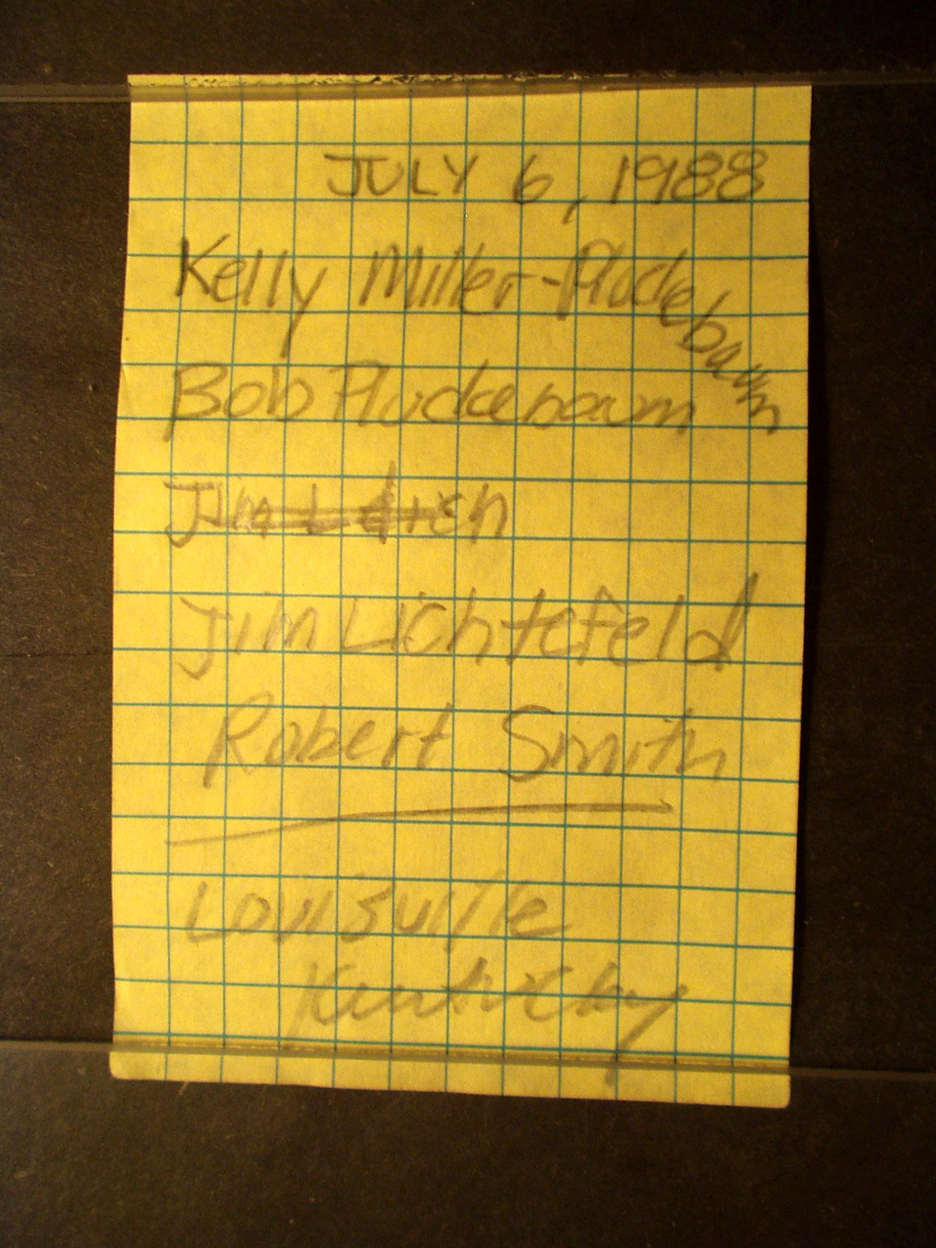 JULY 6, 1988
Kelly Miller-Pluckebaum
Bob Pluckebaum
Jim
Jim Lichtefeld
Robert Smith
Louisville
Kentucky